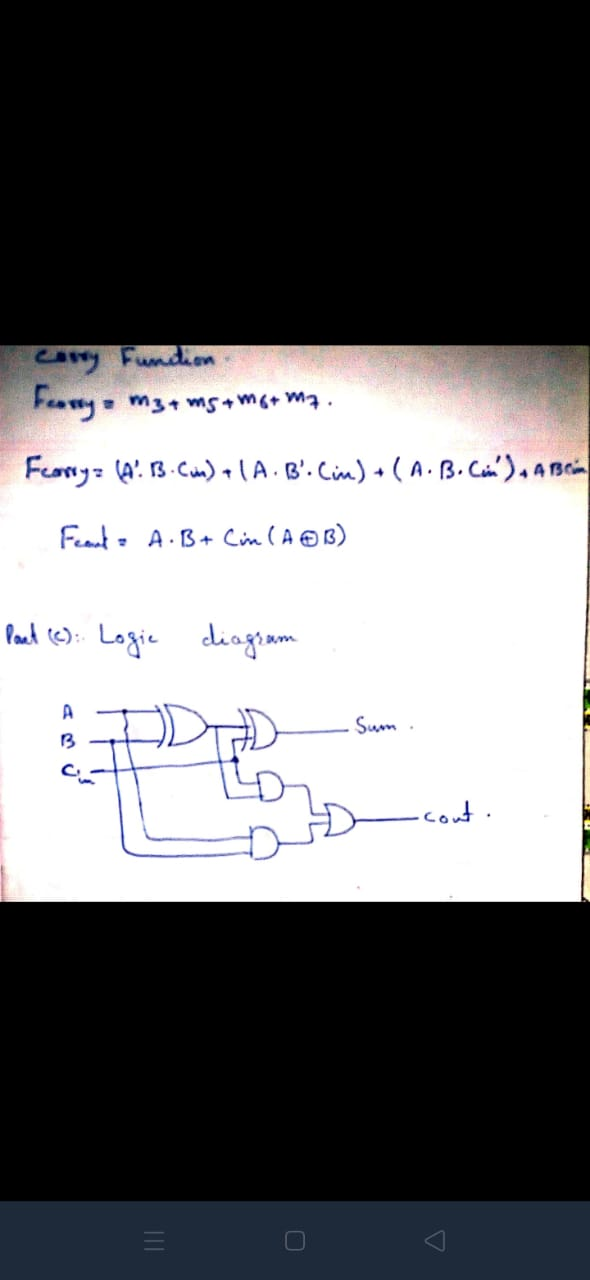 Carry Function.
Fcarry = m3 + m5 + m6 + m7.
Fcarry = (A'. B. Cin) + (A. B'. Cin) + (A. B. Cin') + A B Cin
Fcout = A. B + Cin (A ⊕ B)
Part (c):- Logic diagram
A
B
Cin
Sum.
Cout.